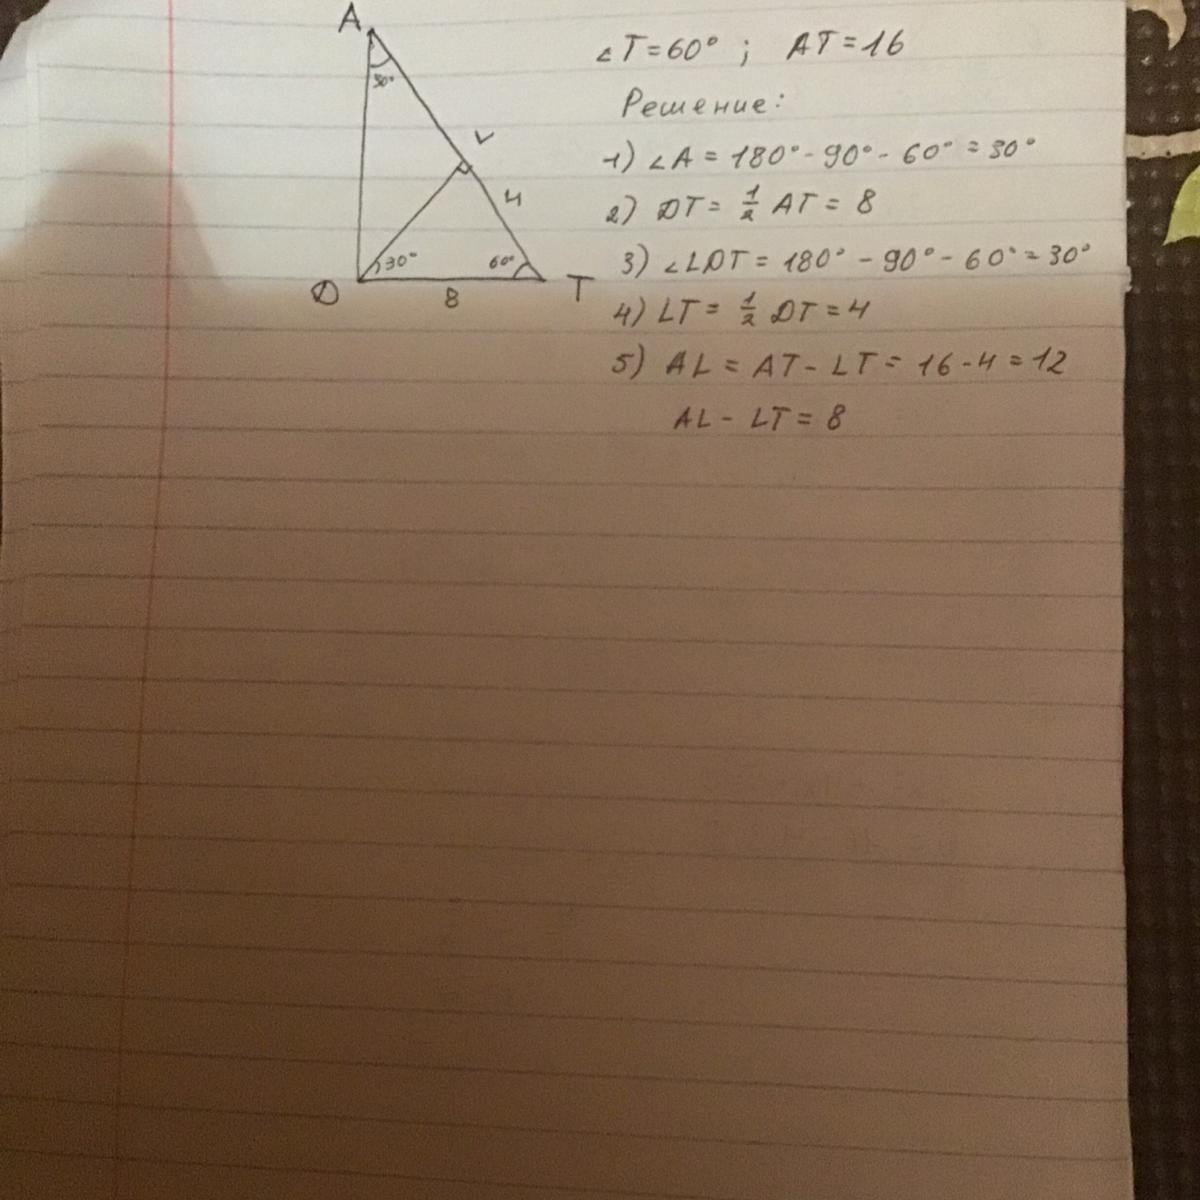 A
30°
L
4
30°
60°
D
8
T
∠T = 60° ; AT = 16
Решение:
1) ∠A = 180° - 90° - 60° = 30°
2) DT = 1/2 AT = 8
3) ∠LDT = 180° - 90° - 60° = 30°
4) LT = 1/2 DT = 4
5) AL = AT - LT = 16 - 4 = 12
AL - LT = 8